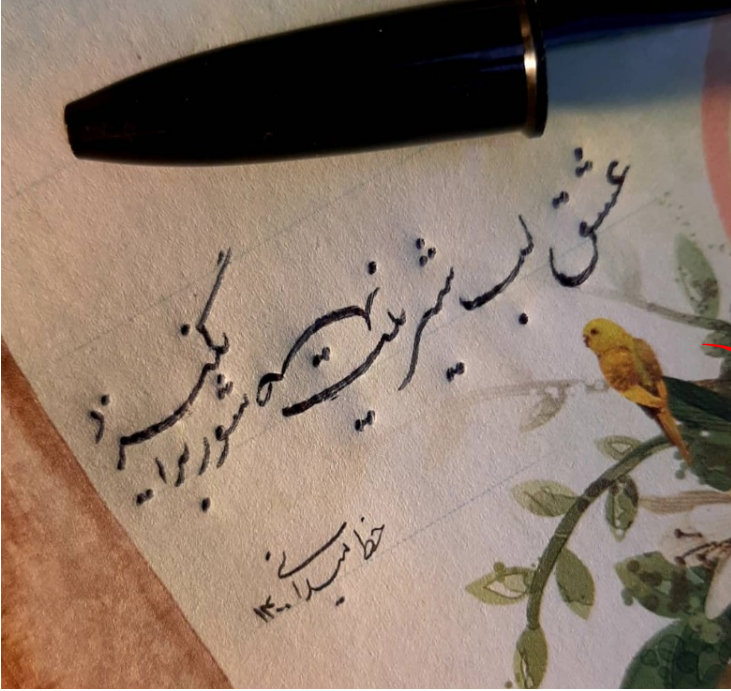 عشق لب شیرینت نه شور برانگیزد
خط میدانی
۱۴۰۰